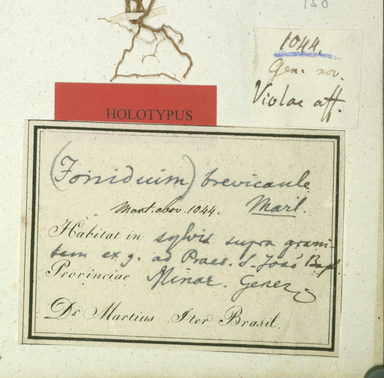 150
1044
Gen. nov.
Violae aff.
HOLOTYPUS
(Ionidium) brevicaule
Mart. obs. 1044. Mart.
Habitat in sylvis supra grani-
tum ex g. ad Praes. S. José
Provinciae Minar. Gener.
Dr Martius Iter Brasil.